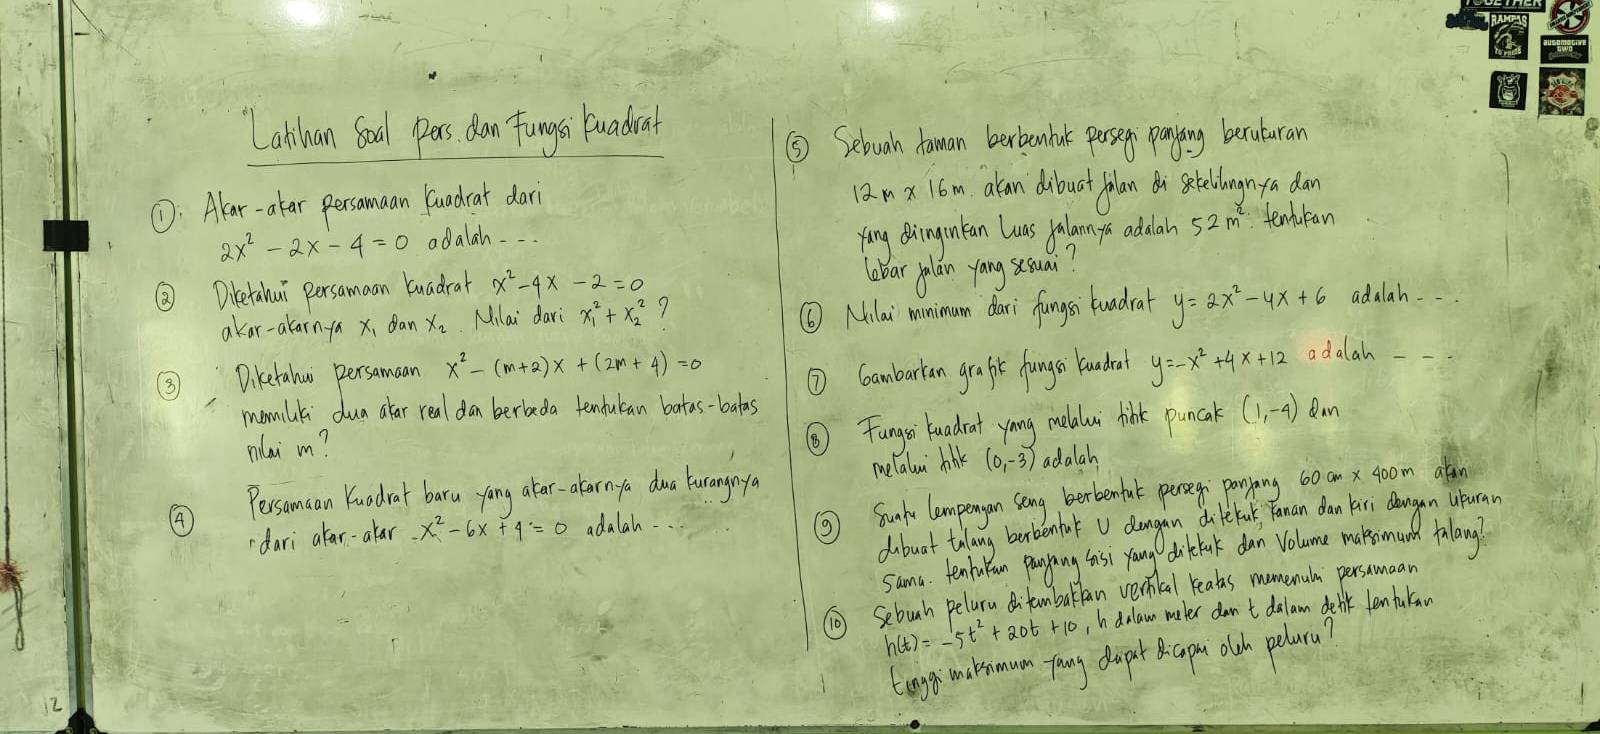 Latihan Soal Pers. dan Fungsi Kuadrat
① Akar-akar persamaan kuadrat dari
2x² - 2x - 4 = 0 adalah ---
② Diketahui persamaan kuadrat x² - 4x - 2 = 0
akar-akarnya x₁ dan x₂. Nilai dari x₁² + x₂² ?
③ Diketahui persamaan x² - (m+2)x + (2m + 4) = 0
memiliki dua akar real dan berbeda tentukan batas-batas
nilai m?
④ Persamaan kuadrat baru yang akar-akarnya dua kurangnya
dari akar-akar x² - 6x + 4 = 0 adalah ---
⑤ Sebuah taman berbentuk persegi panjang berukuran
12 m x 16 m. akan dibuat jalan di sekelilingnya dan
yang diinginkan luas jalannya adalah 52 m². tentukan
lebar jalan yang sesuai?
⑥ Nilai minimum dari fungsi kuadrat y = 2x² - 4x + 6 adalah ---
⑦ Gambarkan grafik fungsi kuadrat y = -x² + 4x + 12 adalah ---
⑧ Fungsi kuadrat yang melalui titik puncak (1,-4) dan
melalui titik (0,-3) adalah
⑨ Suatu lempengan seng berbentuk persegi panjang 60 cm x 400 m akan
dibuat talang berbentuk U dengan ditekuk kanan dan kiri dengan ukuran
sama. tentukan panjang sisi yang ditekuk dan Volume maksimum talang?
⑩ Sebuah peluru ditembakkan vertikal keatas memenuhi persamaan
h(t) = -5t² + 20t + 10, h dalam meter dan t dalam detik tentukan
tinggi maksimum yang dapat dicapai oleh peluru?
12
TOGETHER
RAMPAS
AUTOMOTIVE
TWO